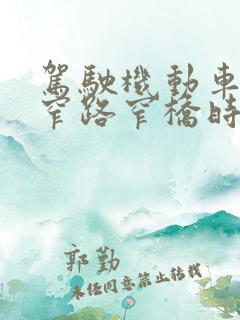 駕駛機動車
窄路窄橋時
郭勤
未经同意禁止转载